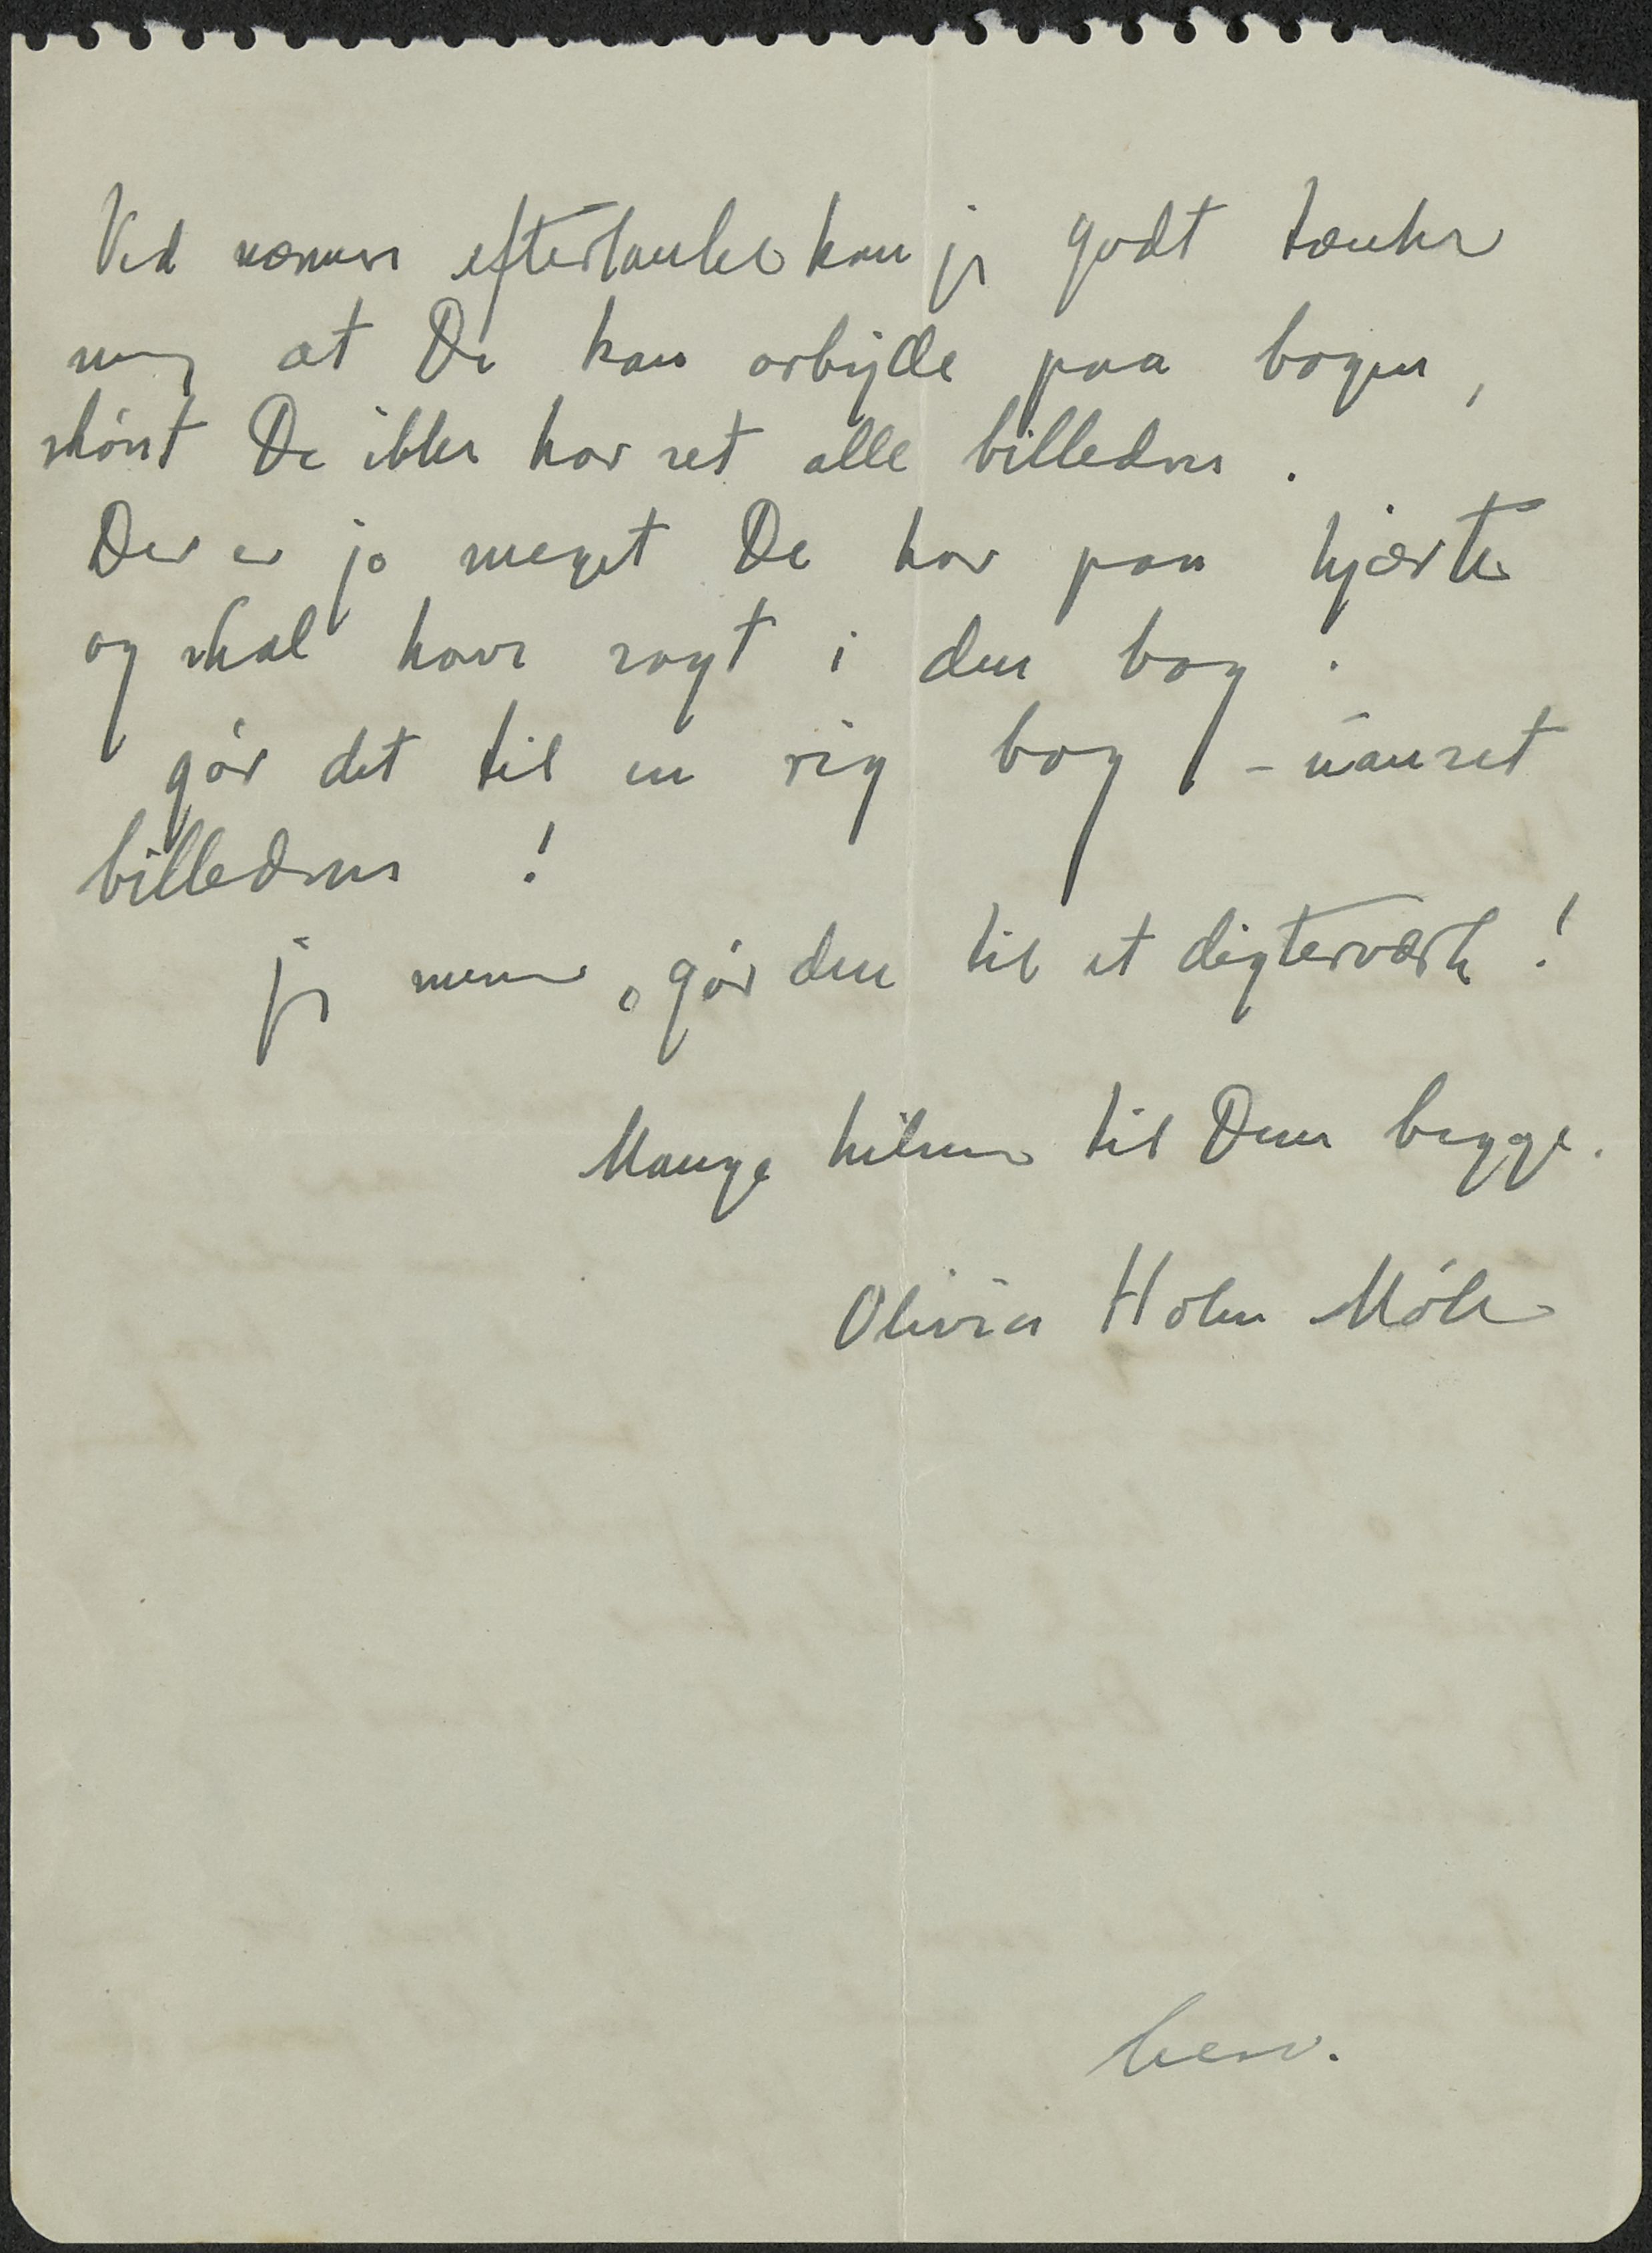 Ved nærmere eftertanke kan jeg godt tænke
mig at De kan arbejde paa bogen,
skönt De ikke har set alle billederne.
Der er jo meget De har paa hjærte
og skal have sagt i den bog.
gör det til en rig bog – uanset
billederne !
jeg mener, gör den til et digterværk !
Mange hilsner til Dem begge.
Olivia Holm Möller
besv.